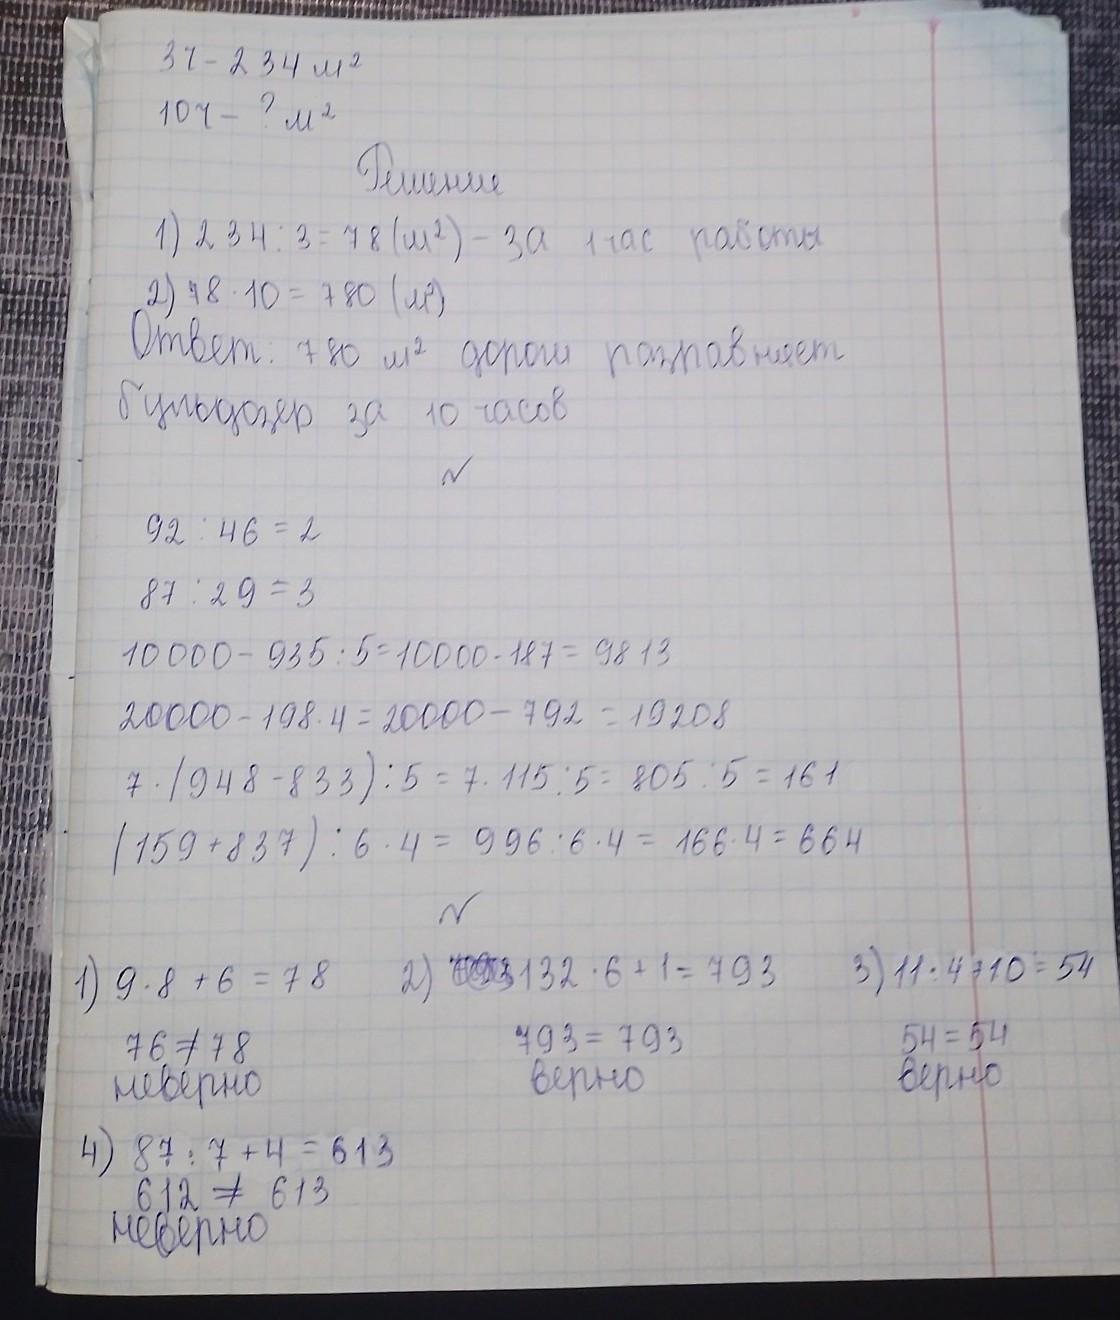 3ч - 234 м²
10ч - ? м²
Решение
1) 234 : 3 = 78 (м²) - за 1 час работы
2) 78 · 10 = 780 (м²)
Ответ: 780 м² дороги разравняет
бульдозер за 10 часов
N
92 : 46 = 2
87 : 29 = 3
10000 - 935 : 5 = 10000 - 187 = 9813
20000 - 198 · 4 = 20000 - 792 = 19208
7 · (948 - 833) : 5 = 7 · 115 : 5 = 805 : 5 = 161
(159 + 837) : 6 · 4 = 996 : 6 · 4 = 166 · 4 = 664
N
1) 9 · 8 + 6 = 78 2) 132 · 6 + 1 = 793 3) 11 · 4 + 10 = 54
76 ≠ 78 793 = 793 54 = 54
неверно верно верно
4) 87 · 7 + 4 = 613
612 ≠ 613
неверно